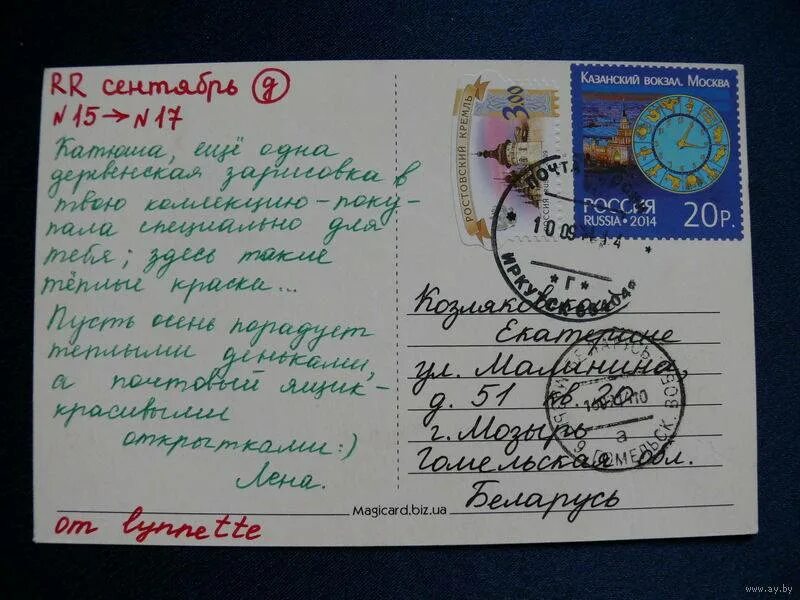 RR сентябрь д
N15→N17
Катюша, ещё одна
деревенская зарисовка в
твою коллекцию - поку-
пала специально для
тебя; здесь такие
тёплые краски...
Пусть осень порадует
теплыми деньками,
а почтовый ящик -
красивыми
открытками :)
Лена.
от lynnette
РОСТОВСКИЙ КРЕМЛЬ
3.00
КАЗАНСКИЙ ВОКЗАЛ. МОСКВА
РОССИЯ
RUSSIA • 2014
20Р.
ПОЧТА
ИРКУТСК
*Г*
Козляковской
Екатерине
ул. Малинина,
д. 51 кв. 20
г. Мозырь
Гомельская обл.
Беларусь
а
ГОМЕЛЬСК. ВОБЛ
Magicard.biz.ua
www.ay.by